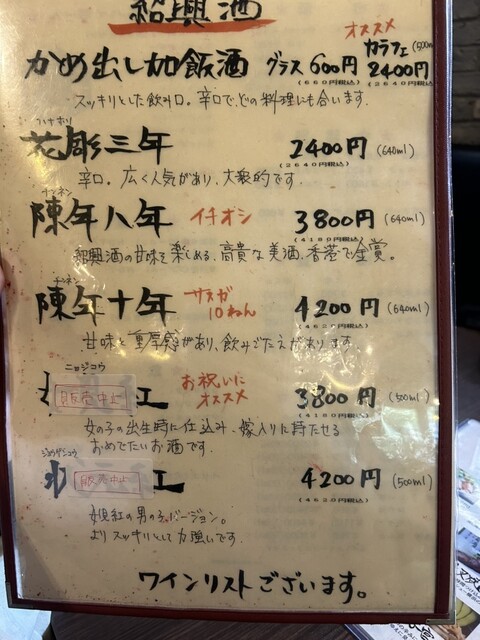 紹興酒
かめ出し加飯酒 グラス 600円 (660円税込)
オススメ カラフェ (500ml) 2400円 (2640円税込)
スッキリとした飲み口。辛口で、どの料理にも合います。
花彫三年 2400円 (640ml)
(2640円税込)
辛口。広く人気があり、大衆的です。
チンネン
陳年八年 イチオシ 3800円 (640ml)
(4180円税込)
紹興酒の甘味を楽しめる、高貴な美酒、香港で金賞。
チンネン
陳年十年 サスガ10ねん 4200円 (640ml)
(4620円税込)
甘味と重厚感があり、飲みごたえがあります。
ニョウジコウ
販売中止 紅 お祝いにオススメ 3800円 (500ml)
(4180円税込)
女の子の出生時に仕込み、嫁入りに持たせる
おめでたいお酒です。
販売中止 紅 4200円 (500ml)
(4620円税込)
女児紅の男の子バージョン。
よりスッキリとして力強いです。
ワインリストございます。